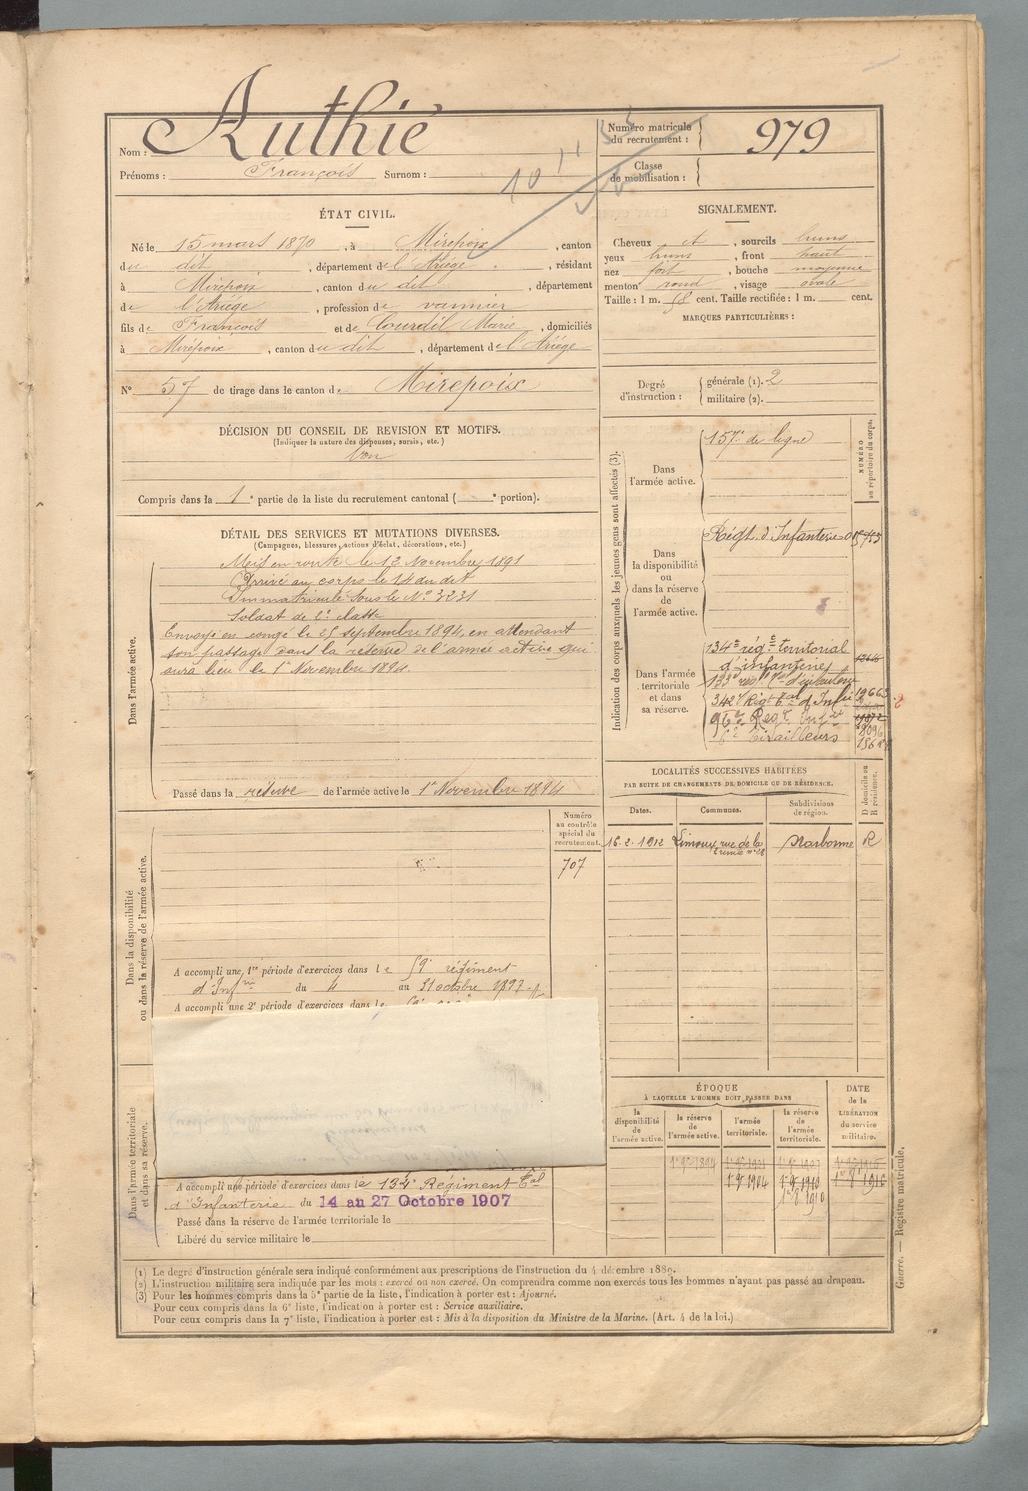 Nom : Authié
Prénoms : François Surnom :
Numéro matricule du recrutement : 979
Classe de mobilisation :
ÉTAT CIVIL.
Né le 15 mars 1870, à Mirepoix, canton
du dit, département de l'Ariége, résidant
à Mirepoix, canton du dit, département
de l'Ariége, profession de vannier
fils de François et de Courdil Marie, domiciliés
à Mirepoix, canton du dit, département de l'Ariége
N° 57 de tirage dans le canton de Mirepoix
DÉCISION DU CONSEIL DE REVISION ET MOTIFS.
(Indiquer la nature des dispenses, sursis, etc.)
bon
Compris dans la 1e partie de la liste du recrutement cantonal ( e portion).
DÉTAIL DES SERVICES ET MUTATIONS DIVERSES.
(Campagnes, blessures, actions d'éclat, décorations, etc.)
Dans l'armée active.
Mis en route le 12 Novembre 1891
Arrivé au corps le 14 du dit
Immatriculé sous le N° 3231
Soldat de 2e classe
Envoyé en congé le 25 septembre 1894, en attendant
son passage dans la réserve de l'armée active qui
aura lieu le 1er Novembre 1894.
Passé dans la réserve de l'armée active le 1er Novembre 1894
Dans la disponibilité
ou dans la réserve de l'armée active.
Numéro
au contrôle
spécial du
recrutement.
707
A accompli une 1re période d'exercices dans le 59e régiment
d'Infrie du 4 au 31 octobre 1897
A accompli une 2e période d'exercices dans le
Dans l'armée territoriale
et dans sa réserve.
A accompli une période d'exercices dans le 134e Régiment tal
d'Infanterie du 14 au 27 Octobre 1907
Passé dans la réserve de l'armée territoriale le
Libéré du service militaire le
SIGNALEMENT.
Cheveux et, sourcils bruns
yeux bruns, front haut
nez fort, bouche moyenne
menton rond, visage ovale
Taille : 1 m. 58 cent. Taille rectifiée : 1 m. cent.
MARQUES PARTICULIÈRES :
Degré d'instruction :
générale (1). 2
militaire (2).
Indication des corps auxquels les jeunes gens sont affectés (3).
NUMÉRO
au répertoire du corps.
Dans
l'armée active.
157e de ligne
Dans
la disponibilité
ou
dans la réserve
de
l'armée active.
Régt. d'Infanterie
Dans l'armée
territoriale
et dans
sa réserve.
134e régt territorial
d'infanterie
133e
342e Régt tal d'Infie 19663
96e Regt Infie
6e Tirailleurs
LOCALITÉS SUCCESSIVES HABITÉES
PAR SUITE DE CHANGEMENTS DE DOMICILE OU DE RÉSIDENCE.
Dates. Communes. Subdivisions de région. D domicile ou R résidence.
16.2.1912 Limoux, rue de la Narbonne R
ÉPOQUE
À LAQUELLE L'HOMME DOIT PASSER DANS
la disponibilité de l'armée active.
la réserve de l'armée active.
l'armée territoriale.
la réserve de l'armée territoriale.
DATE de la LIBÉRATION du service militaire.
1er 9bre 1894
1er 8 1904 1er 8 1910 1er 8 1916
(1) Le degré d'instruction générale sera indiqué conformément aux prescriptions de l'instruction du 4 décembre 1889.
(2) L'instruction militaire sera indiquée par les mots : exercé ou non exercé. On comprendra comme non exercés tous les hommes n'ayant pas passé au drapeau.
(3) Pour les hommes compris dans la 5e partie de la liste, l'indication à porter est : Ajourné.
Pour ceux compris dans la 6e liste, l'indication à porter est : Service auxiliaire.
Pour ceux compris dans la 7e liste, l'indication à porter est : Mis à la disposition du Ministre de la Marine. (Art. 4 de la loi.)
Guerre. — Registre matricule.